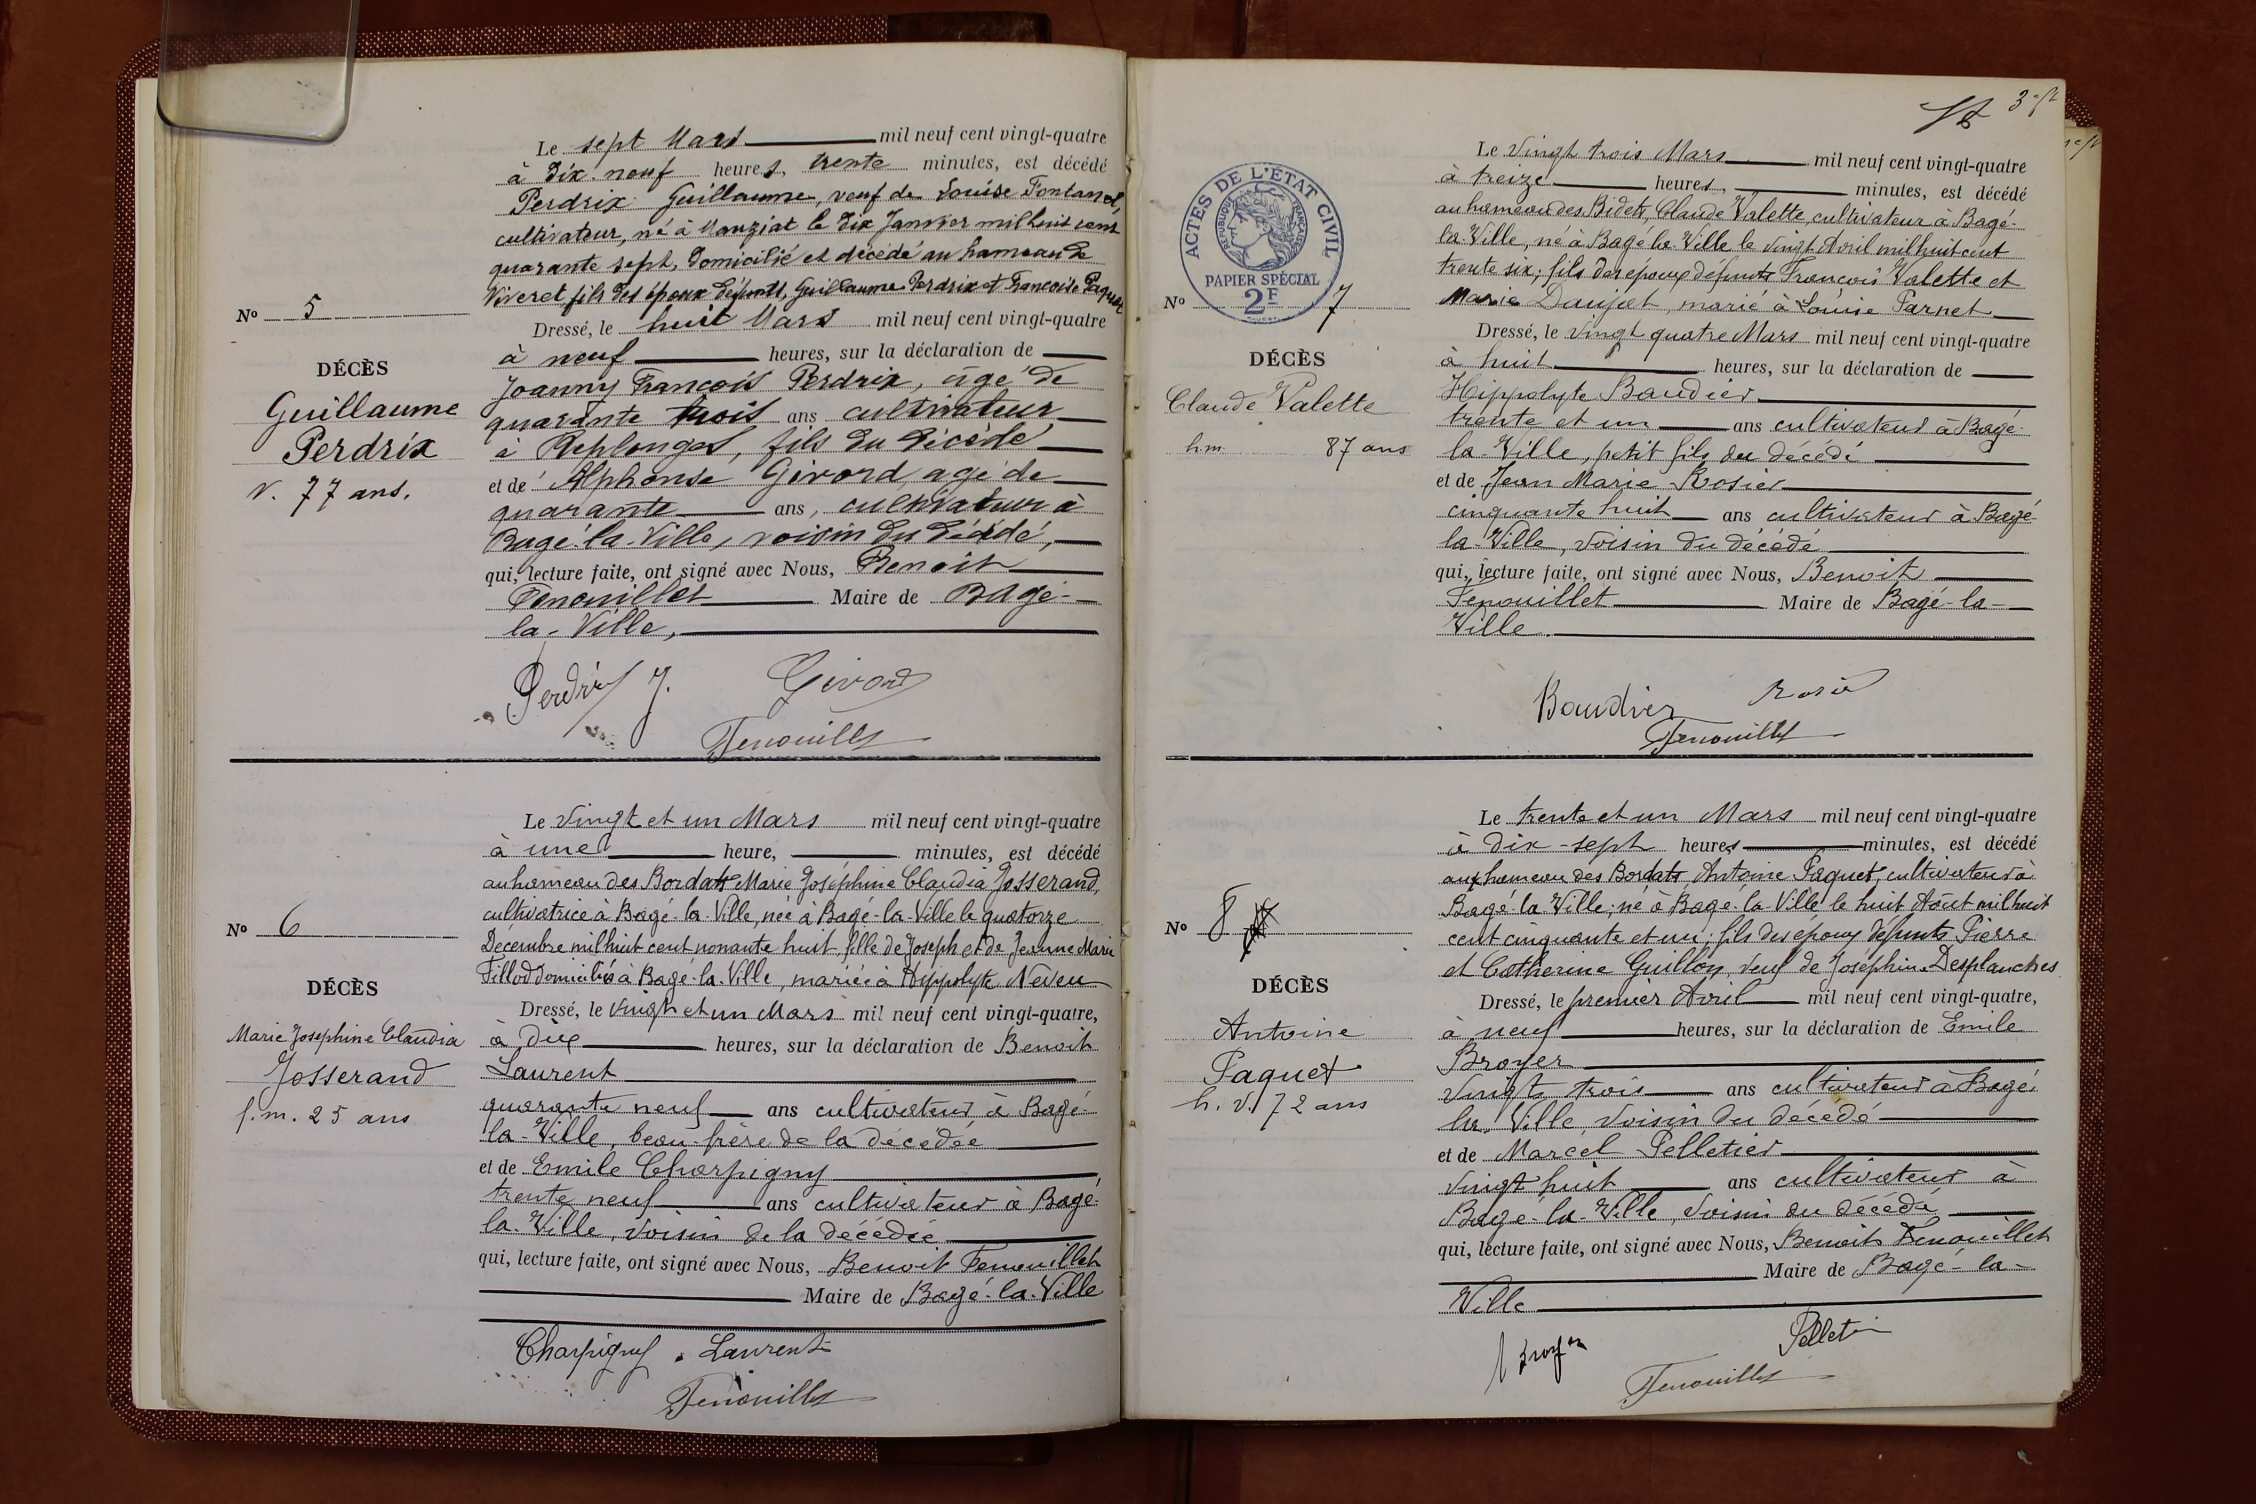 Le sept Mars mil neuf cent vingt-quatre
à dix-neuf heures, trente minutes, est décédé
Perdrix Guillaume, veuf de Louise Fontanel,
cultivateur, né à Manziat le dix Janvier mil huit cent
quarante sept, domicilié et décédé au hameau de
Viveret, fils des époux défunts, Guillaume Perdrix et Françoise Paquet
No 5
Dressé, le huit Mars mil neuf cent vingt-quatre
à neuf heures, sur la déclaration de
DÉCÈS
Guillaume
Perdrix
v. 77 ans.
Joanny François Perdrix, âgé de
quarante trois ans cultivateur
à Replonges, fils du décédé
et de Alphonse Givord, agé de
quarante ans, cultivateur à
Bagé-la-Ville, voisin du décédé,
qui, lecture faite, ont signé avec Nous, Benoit
Fenouillet Maire de Bagé-
la-Ville,
Perdrix J. Givord
Fenouillet
Le vingt et un Mars mil neuf cent vingt-quatre
à une heure, minutes, est décédé
au hameau des Bordats Marie Joséphine Claudia Josserand,
cultivatrice à Bagé-la-Ville, née à Bagé-la-Ville le quatorze
Décembre mil huit cent nonante huit, fille de Joseph et de Jeanne Marie
Fillod domiciliés à Bagé-la-Ville, mariée à Hyppolyte Neveu
No 6
DÉCÈS
Marie Josephine Claudia
Josserand
f. m. 25 ans
Dressé, le vingt et un Mars mil neuf cent vingt-quatre,
à dix heures, sur la déclaration de Benoit
Laurent
quarante neuf ans cultivateur à Bagé-
la-Ville, beau-frère de la décédée
et de Emile Charpigny
trente neuf ans cultivateur à Bagé-
la-Ville, voisin de la décédée
qui, lecture faite, ont signé avec Nous, Benoit Fenouillet
Maire de Bagé-la-Ville
Charpigny Laurent
Fenouillet
3
ACTES DE L'ÉTAT CIVIL
RÉPUBLIQUE FRANÇAISE
PAPIER SPÉCIAL
2F
Le vingt trois Mars mil neuf cent vingt-quatre
à treize heures, minutes, est décédé
au hameau des Bidets, Claude Valette, cultivateur à Bagé-
la-Ville, né à Bagé-la-Ville le vingt Avril mil huit cent
trente six; fils des époux défunts François Valette et
Marie Daujat, marié à Louise Parnet
No 7
DÉCÈS
Claude Valette
h m 87 ans
Dressé, le vingt quatre Mars mil neuf cent vingt-quatre
à huit heures, sur la déclaration de
Hippolyte Baudier
trente et un ans cultivateur à Bagé-
la-Ville, petit fils du décédé
et de Jean Marie Rosier
cinquante huit ans cultivateur à Bagé-
la-Ville, voisin du décédé
qui, lecture faite, ont signé avec Nous, Benoit
Fenouillet Maire de Bagé-la-
Ville.
Baudier Rosier
Fenouillet
Le trente et un Mars mil neuf cent vingt-quatre
à dix-sept heures minutes, est décédé
au hameau des Bordats, Antoine Paquet, cultivateur à
Bagé-la-Ville, né à Bagé-la-Ville le huit Août mil huit
cent cinquante et un; fils des époux défunts Pierre
et Catherine Guillon, veuf de Joséphine Desplanches
No 8
DÉCÈS
Antoine
Paquet
h. v. 72 ans
Dressé, le premier Avril mil neuf cent vingt-quatre,
à neuf heures, sur la déclaration de Emile
Broyer
vingt trois ans cultivateur à Bagé
la-Ville voisin du décédé
et de Marcel Pelletier
vingt huit ans cultivateur à
Bagé-la-Ville, voisin du décédé
qui, lecture faite, ont signé avec Nous, Benoit Fenouillet
Maire de Bagé-la-
Ville
Broyer Pelletier
Fenouillet